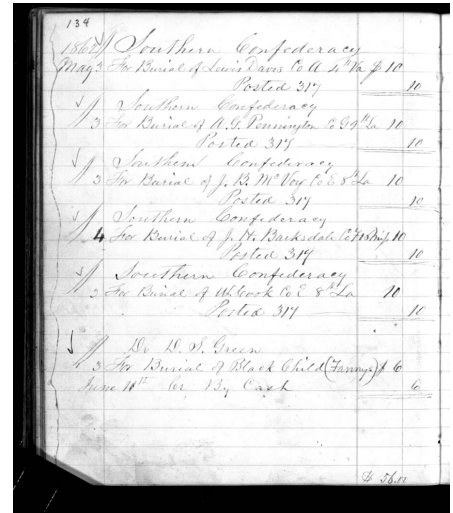 134
1862 Southern Confederacy
May 3 For Burial of Lewis Davis Co A 4th Va $ 10
Posted 317 10
Southern Confederacy
3 For Burial of A. G. Pennington Co G 9th La 10
Posted 317 10
Southern Confederacy
3 For Burial of J. B. McVoy Co E 8th La 10
Posted 317 10
Southern Confederacy
4 For Burial of J. H. Barksdale Co 18 Miss 10
Posted 317 10
Southern Confederacy
3 For Burial of W. Cook Co E 8th La 10
Posted 317 10
Dr D. S. Green
3 For Burial of Black Child (Fannys) $ 6
June 10th Cr By Cash 6
$ 56.00